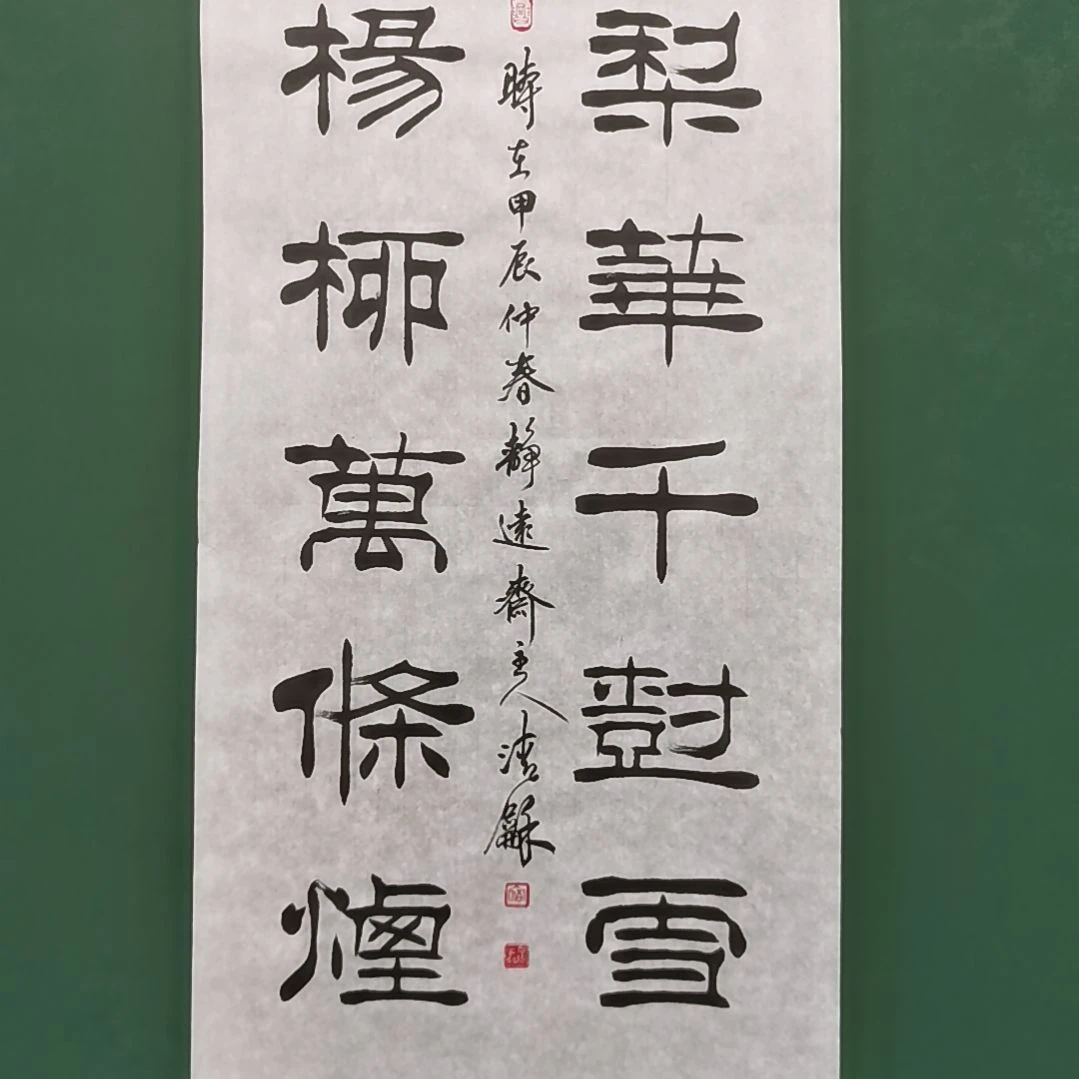 梨華千樹雪
楊柳萬條煙
時在甲辰仲春靜遠齋主人清龢